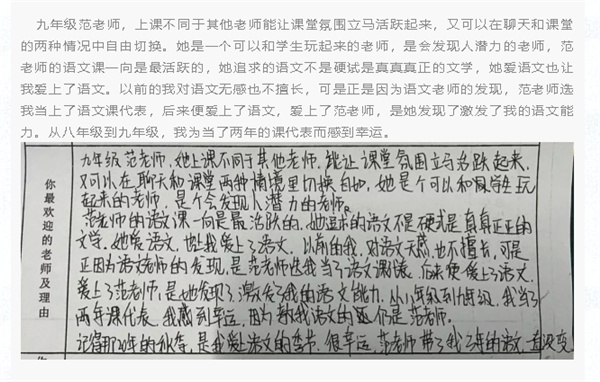 九年级范老师，上课不同于其他老师能让课堂氛围立马活跃起来，又可以在聊天和课堂
的两种情况中自由切换。她是一个可以和学生玩起来的老师，是会发现人潜力的老师，范
老师的语文课一向是最活跃的，她追求的语文不是硬试是真真真正的文学，她爱语文也让
我爱上了语文。以前的我对语文无感也不擅长，可是正是因为语文老师的发现，范老师选
我当上了语文课代表，后来便爱上了语文，爱上了范老师，是她发现了激发了我的语文能
力。从八年级到九年级，我为当了两年的课代表而感到幸运。
你最欢迎的老师及理由
九年级范老师，她上课不同于其他老师，能让课堂氛围立马活跃起来，
又可以在聊天和课堂两种情境里切换自如，她是个可以和学生玩
起来的老师，是个会发现人潜力的老师。
范老师的语文课一向是最活跃的，她追求的语文不是硬式是真真正正的
文学，她爱语文，也让我爱上了语文，以前的我，对语文无感，也不擅长，可是
正因为语文老师的发现，是范老师选我当了语文课代表，后来便爱上了语文，
爱上了范老师，是她发现了，激发了我的语文能力，从八年级到九年级，我当了
两年课代表，我感到幸运，因为教我语文的还仍是范老师。
记得那年的秋季，是我爱上语文的季节，很幸运，范老师带了我2年的语文，直没变